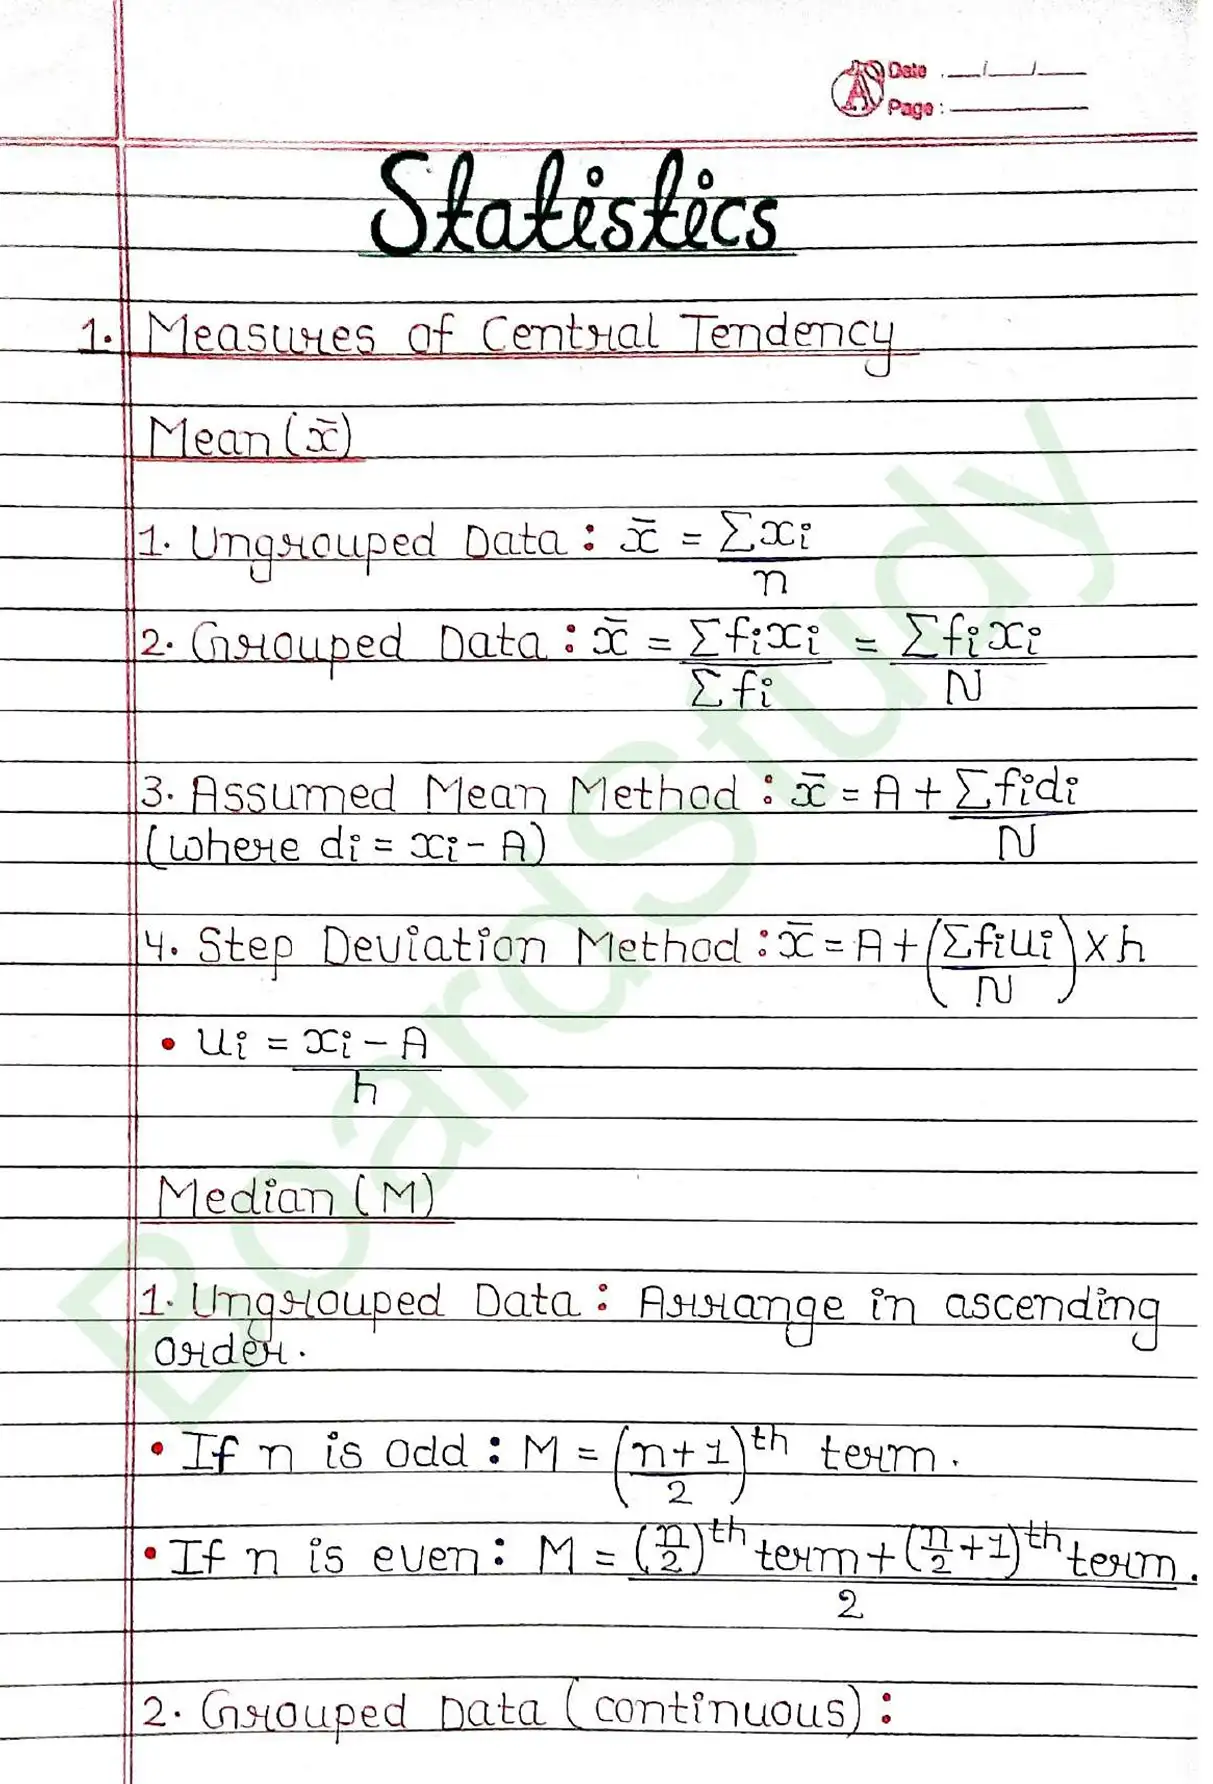 Date : __/__/__
Page :
Statistics
1. Measures of Central Tendency
Mean (x̄)
1. Ungrouped Data : x̄ = Σxi / n
2. Grouped Data : x̄ = Σfixi / Σfi = Σfixi / N
3. Assumed Mean Method : x̄ = A + Σfidi / N
(where di = xi - A)
4. Step Deviation Method : x̄ = A + (Σfiui / N) × h
• ui = xi - A / h
Median (M)
1. Ungrouped Data : Arrange in ascending
order.
• If n is odd : M = (n+1 / 2)th term.
• If n is even : M = (n/2)th term + (n/2 + 1)th term. / 2
2. Grouped Data (continuous) :
BoardStudy